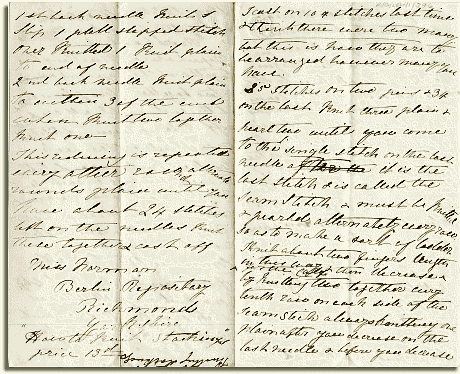 1st back needle Knit 1
Slip 1 pull slipped stitch
over Knitted 1 Knit plain
to end of needle
2nd back needle Knit plain
to within 3 of the end
when Knit two together
Knit one
This reducing is repeated
every other row & alternate
rounds plain until you
have about 24 stitches
left on the needles Knit
these together & cast off
Miss Norman
Berlin Repository
Richmond
Yorkshire
price 13
I cast on 104 stitches last time
& think there were too many
but this is how they are to
be arranged however many you
have.
35 stitches on two pins & 34
on the last Knit three plain &
pearl two until you come
to the single stitch on the last
needle it is the
last stitch & is called the
Seam Stitch & must be Knitted
& pearled alternately every row
so as to make a sort of ladder
Knit about two fingers length
in this way
then decrease
by Knitting two together every
tenth row on each side of the
seam stitch always knitting one
plain after you decrease on the
last needle & before you decrease